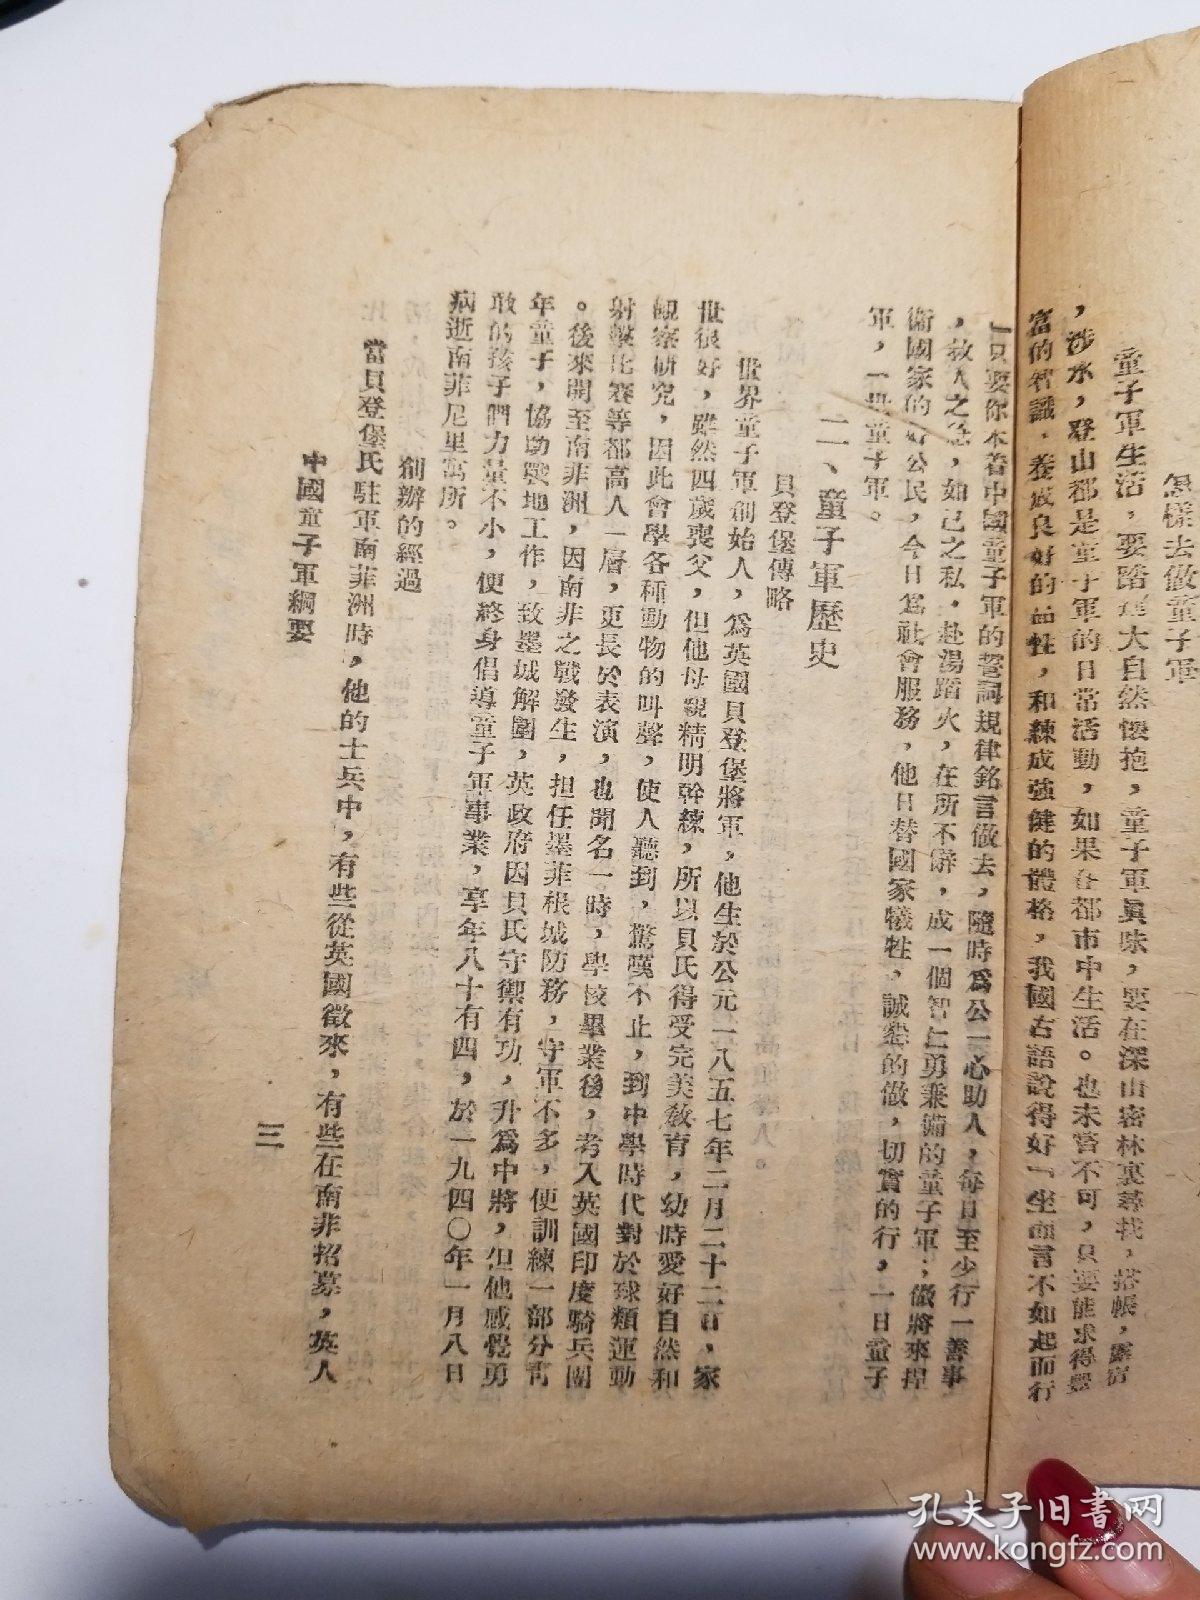 怎樣去做童子軍
童子軍生活，要踏進大自然懷抱，童子軍眞味，要在深山密林裏尋找，搭帳，露宿
，涉水，登山都是童子軍的日常活動，如果在都市中生活。也未嘗不可，只要能求得豐
富的智識．養成良好的血性，和練成強健的體格，我國古語說得好「坐而言不如起而行
」只要你本着中國童子軍的誓詞規律銘言做去，隨時爲公一心助人，每日至少行一善事
，救人之急，如己之私，赴湯蹈火，在所不辭，成一個智仁勇兼備的童子軍，做將來捍
衛國家的好公民，今日爲社會服務，他日替國家犧牲，誠懇的做，切實的行，一日童子
軍，一世童子軍。
二、童子軍歷史
貝登堡傳略
世界童子軍創始人，爲英國貝登堡將軍，他生於公元一八五七年二月二十二日，家
世很好，雖然四歲喪父，但他母親精明幹練，所以貝氏得受完美教育，幼時愛好自然和
觀察研究，因此會學各種動物的叫聲，使人聽到，驚嘆不止，到中學時代對於球類運動
射擊比賽等都高人一層，更長於表演，也聞名一時，學校畢業後，考入英國印度騎兵團
。後來開至南非洲，因南非之戰發生，担任墨菲根城防務，守軍不多，便訓練一部分靑
年童子，協助戰地工作，致墨城解圍，英政府因貝氏守禦有功，升爲中將，但他感覺勇
敢的孩子們力量不小，便終身倡導童子軍事業，享年八十有四，於一九四〇年一月八日
病逝南菲尼里寓所。
創辦的經過
當貝登堡氏駐軍南菲洲時，他的士兵中，有些從英國徵來，有些在南非招募，英人
中國童子軍綱要
三
孔夫子旧书网
www.kongfz.com